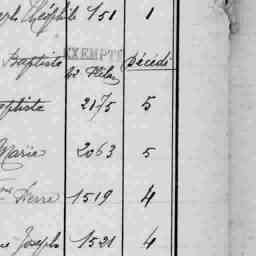 Théophile 151 1
Baptiste EXEMPTÉ Décédé
aptiste 2175 5
Marie 2063 5
Pierre 1519 4
Joseph 1521 4